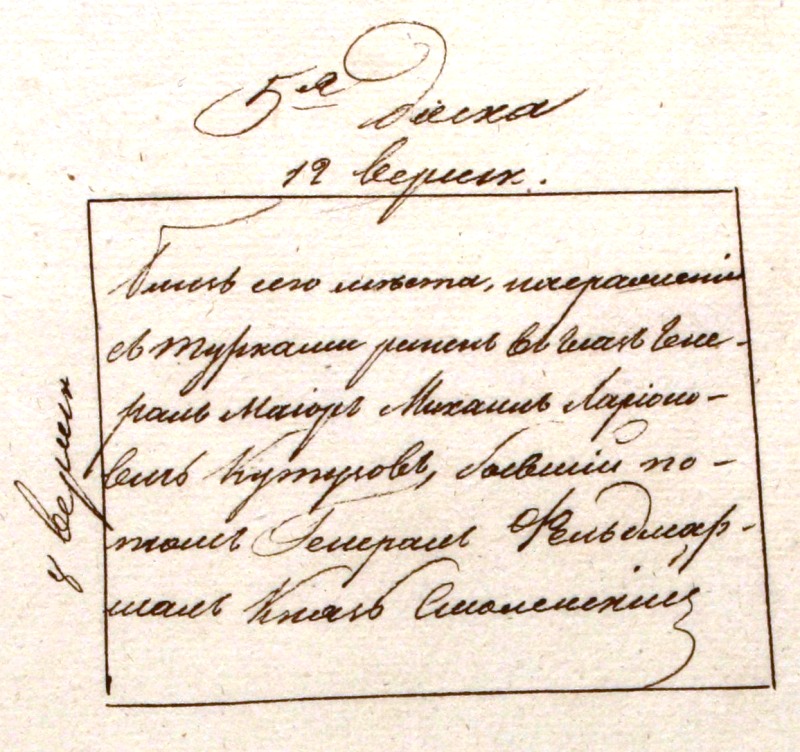 5я доска
12 вершк.
Близь сего мѣста, насраженіи
съ турками раненъ въ глазъ Гене-
ралъ Маіоръ Михаилъ Ларіоно-
вичъ Кутузовъ, бывшій по-
томъ Генералъ Фельдмар-
шалъ Князь Смоленскій
8 вершк